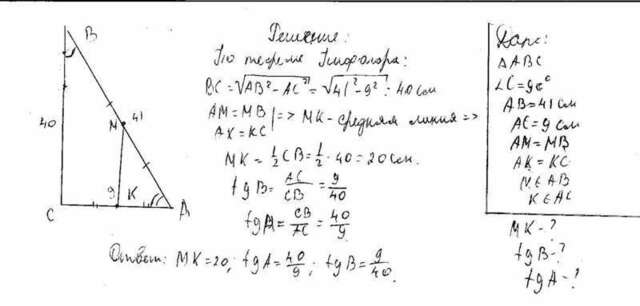 B
40
M 41
9 K
C A
Решение:
По теореме Пифагора:
BC = √AB² - AC² = √41² - 9² = 40 см
AM = MB
AK = KC | => MK - средняя линия =>
MK = 1/2 CB = 1/2 · 40 = 20 см.
tg B = AC/CB = 9/40
tg A = CB/AC = 40/9
Ответ: MK = 20; tg A = 40/9; tg B = 9/40.
Дано:
△ABC
∠C = 90°
AB = 41 см
AC = 9 см
AM = MB
AK = KC
M ∈ AB
K ∈ AC
MK - ?
tg B - ?
tg A - ?